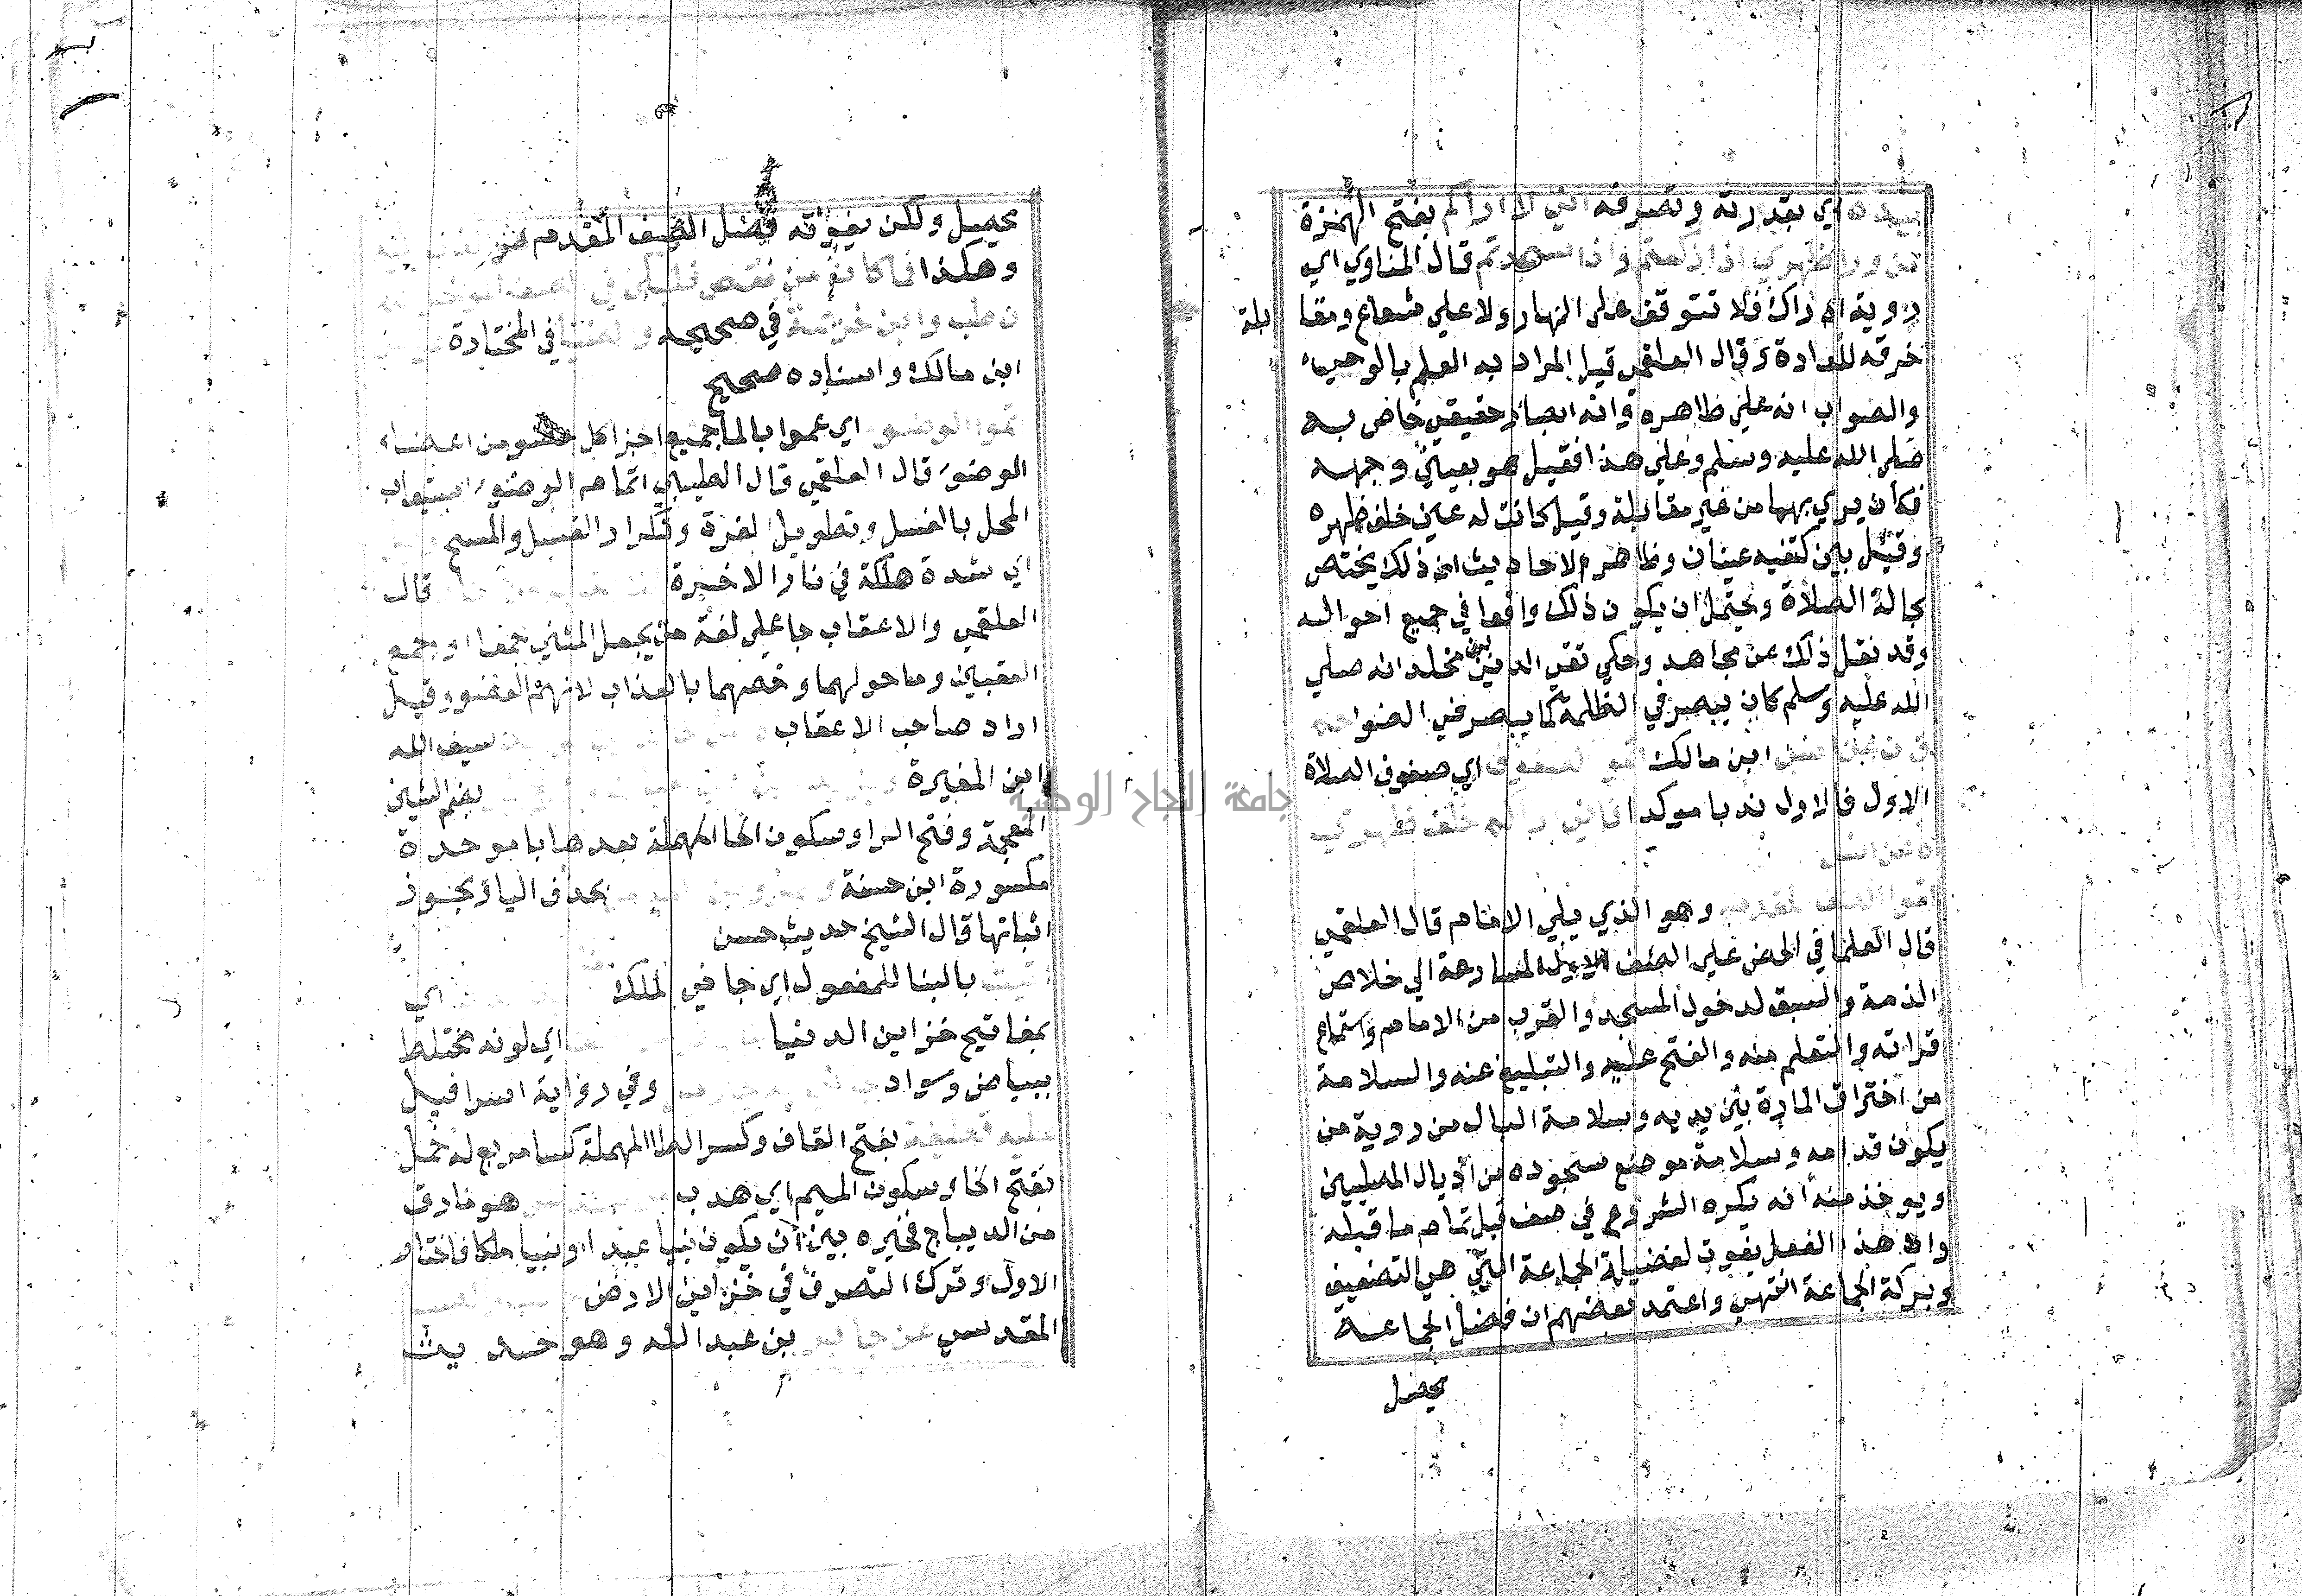 بيده اي بقدرته وتصرفه اني لاراكم بفتح الهمزة
من وراظهري اذا ركعتم واذا سجدتم قال المناوي اي
روية ادراك فلا تتوقف على النهار ولا علي شعاع ومقا
بلة
خرقه للعادة وقال العلقمي قيل المراد به العلم بالوحي
والصواب انه علي ظاهره وانه ابصار حقيقي خاص به
صلى الله عليه وسلم وعلي هذا فقيل هو بعيني وجهه
فكان يري بهما من غير مقابلة وقيل كانت له عين خلف ظهره
وقيل بين كتفيه عينان وظاهر الاحاديث ان ذلك يختص
بحالة الصلاة ويحتمل ان يكون ذلك واقعا في جميع احواله
وقد نقل ذلك عن مجاهد وحكي تقي الدين بن مخلد انه صلي
الله عليه وسلم كان يبصر في الظلمة كما يبصر في الضو
ابن مالك اتموا الصفوف اي صفوف الصلاة
الاول فالاول ندبا موكدا فاني اراكم خلف ظهري
عن انس
اتموا الصف المقدم وهو الذي يلي الامام قال العلقمي
قال العلما في الحض علي الصف الاول المسارعة الي خلاص
الذمة والسبق لدخول المسجد والقرب من الامام واستماع
قراته والتعلم منه والفتح عليه والتبليغ عنه والسلامة
من اختراق المارة بين يديه وسلامة البال من روية من
يكون قدامه وسلامة موضع سجوده من اذيال المصليين
ويوخذ منه انه يكره الشروع في صف قبل تمام ما قبله
وان هذا الفعل يفوت لفضيلة الجماعة التي هي التضعيف
وبركة الجماعة انتهي واعتمد بعضهم ان فضل الجماعة
يحصل
يحصل ولكن يفوته فضل الصف المقدم
وهكذا فما كان من نقص فليكن في الصف الموخر
وابن خزيمة في صحيحه والضيا في المختارة
ابن مالك واسناده صحيح
اتموا الوضو اي عموا بالما جميع اجزا كل عضو من اعضاء
الوضوء قال العلقمي قال الطيبي اتمام الوضوء استيعاب
المحل بالغسل وتطويل الغرة وتكرار الغسل والمسح
اي شدة هلكة في نار الاخرة قال
العلقمي والاعقاب جا علي لغة من يجعل المثني جمعا او جمع
العقبين وما حولهما وخصهما بالعذاب لانهما العضو وقيل
اراد صاحب الاعقاب سيف الله
ابن المغيرة بضم الشين
المعجمة وفتح الرا وسكون الحا المهملة بعدها با موحدة
مكسورة ابن حسنة بحذف اليا ويجوز
اثباتها قال الشيخ حديث حسن
اتيت بالبنا للمفعول اي جا في الملك اي
بمفاتيح خزاين الدنيا اي لونه مختلط
ببياض وسواد وفي رواية اسرافيل
عليه قطيفة بفتح القاف وكسر الطا المهملة كسا مربع له خمل
بفتح الخا وسكون الميم اي هدب هو مارق
من الديباج فخيره بين ان يكون نبيا عبدا او نبيا ملكا فاختار
الاول وترك التصرف في خزاين الارض
المقدسي عن جابر بن عبد الله وهو حديث
جامعة النجاح الوطنية